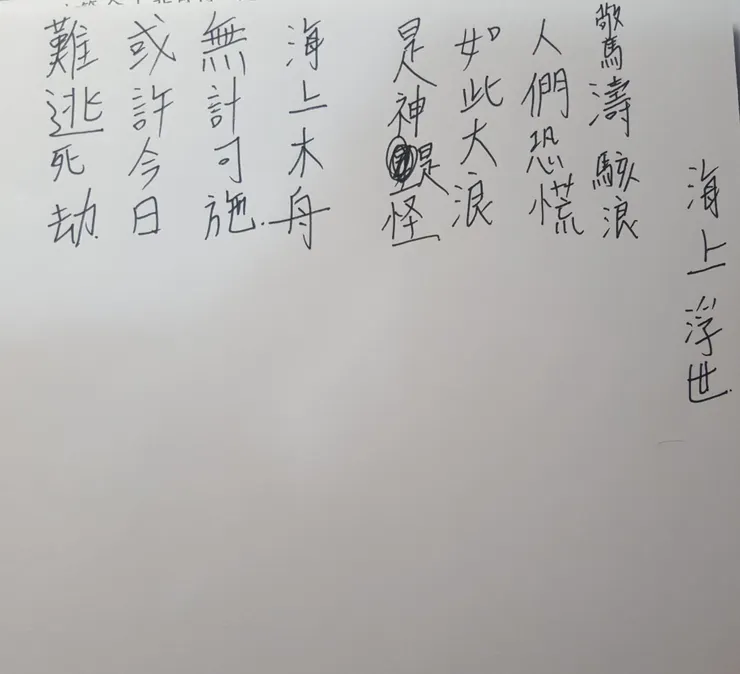 海上浮世
驚濤駭浪
人們恐慌
如此大浪
是神是怪
海上木舟
無計可施
或許今日
難逃死劫